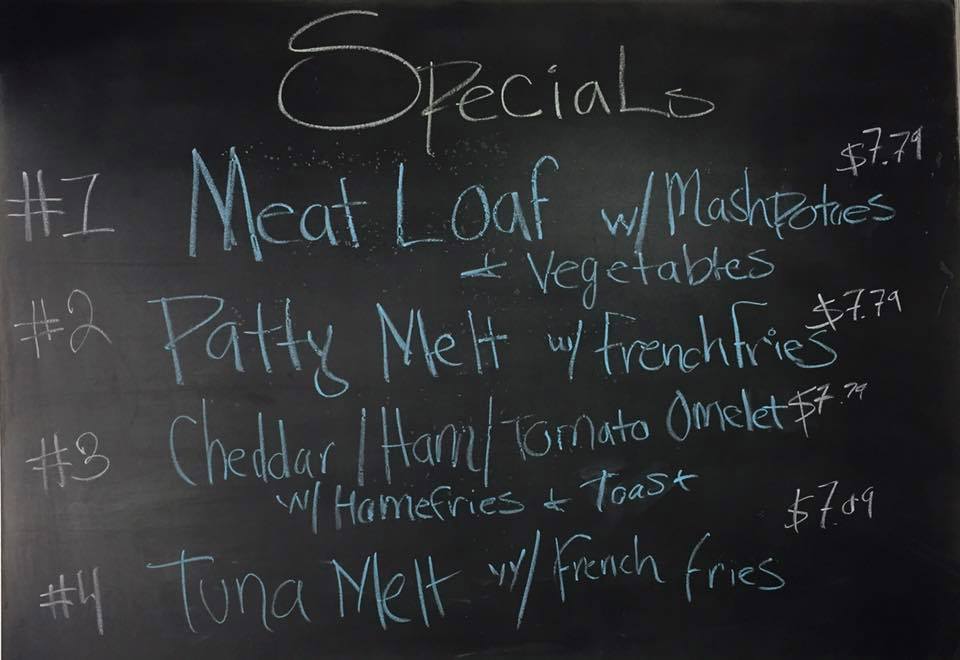 Specials
#1 Meat Loaf w/ Mash Potoes $7.79
+ Vegetables
#2 Patty Melt w/ French Fries $7.79
#3 Cheddar / Ham / Tomato Omelet $7.79
w/ Homefries + Toast
#4 Tuna Melt w/ French fries $7.09